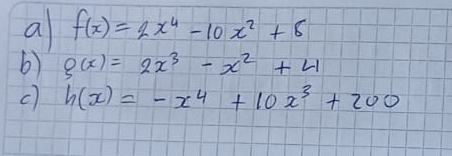 a) f(x) = 2x⁴ - 10x² + 8
b) g(x) = 2x³ - x² + 4
c) h(x) = -x⁴ + 10x³ + 200